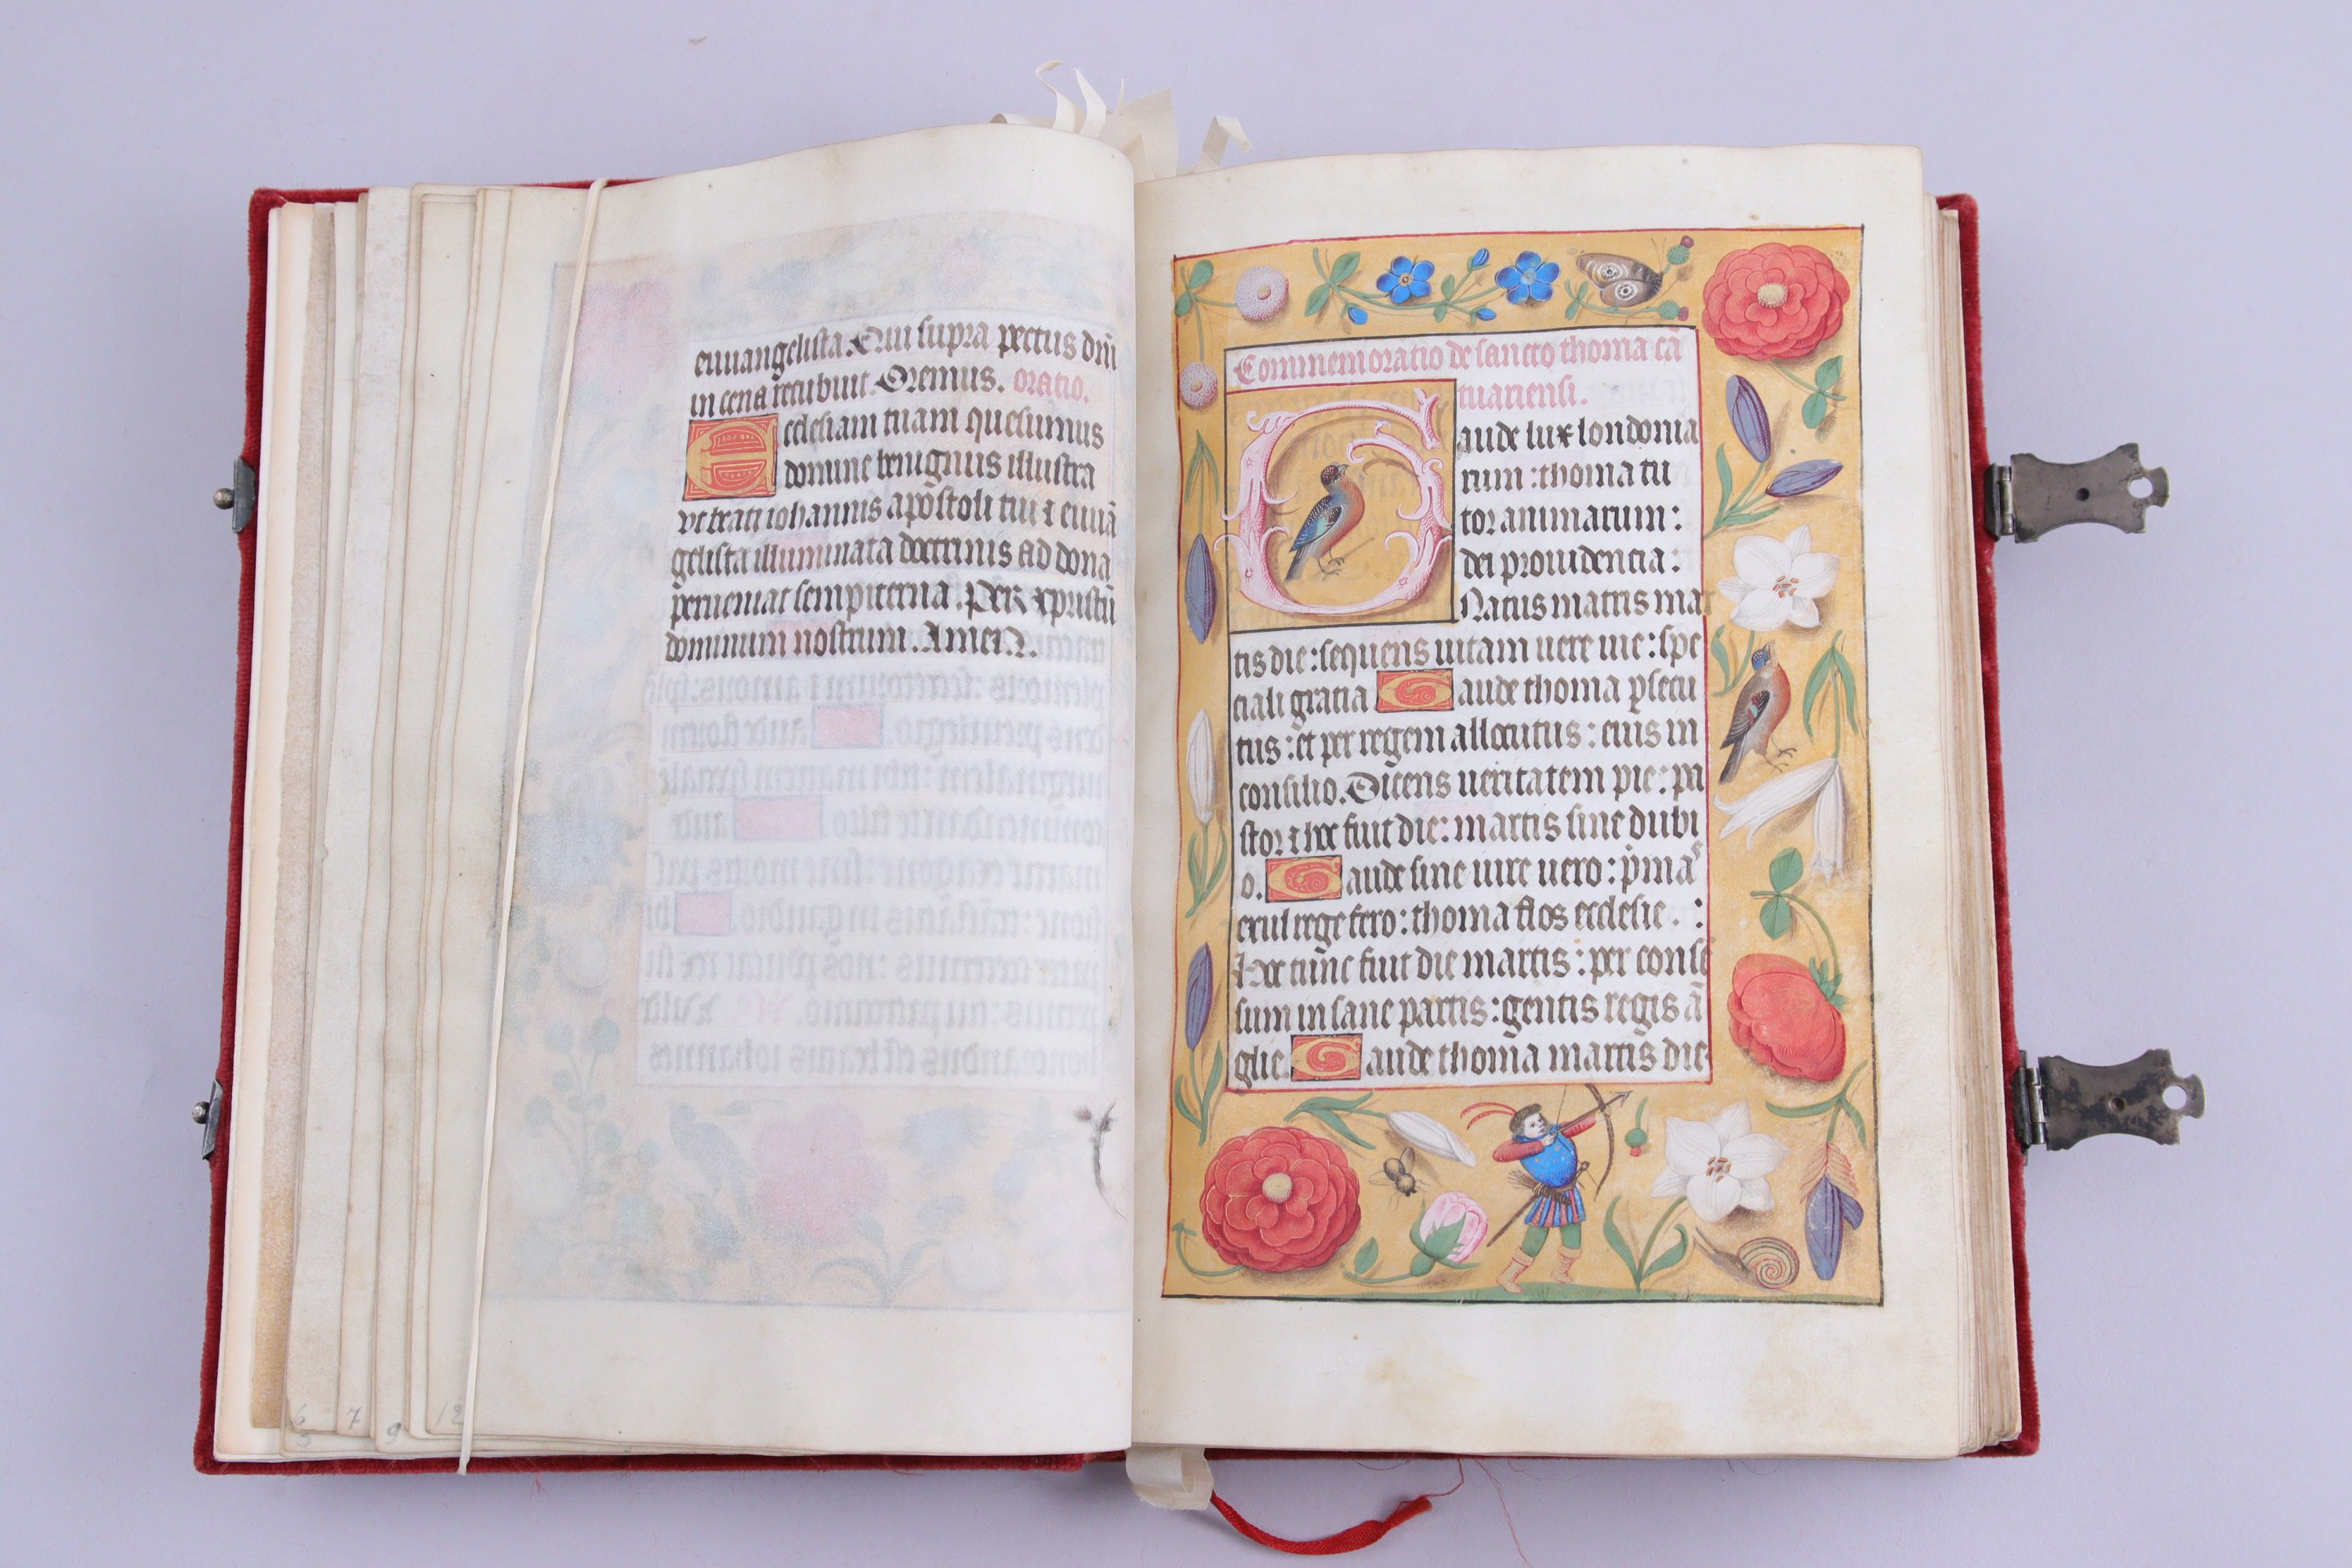 euuangelista. Qui supra pectus dñi
in cena recubuit. Oremus. oratio.
Ecclesiam tuam quesumus
domine benignus illustra
vt beati iohannis apostoli tui ⁊ euuā
gelista illuminata doctrinis ad dona
perueniat sempiterna. Per xpristū
dominum nostrum. Amen.
Commemoratio de sancto thoma cā
tuariensi.
Gaude lux londonia
rum : thoma tu
tor animarum :
dei prouidencia :
Natus martis mar
tis die : sequens uitam uere uie : spe
ciali gratia Gaude thoma ꝑsecu
tus : et per regem allocutus : eius in
consilio. Dicens ueritatem pie : pa
stor ⁊ hec fuit die : martis sine dubi
o. Gaude sine uire uero : pͥma
exul rege fero : thoma flos ecclesie . :
Hec tūnc fuit die martis : per conse
sum insane partis : gentis regis ā
glie. Gaude thoma martis die
6
7
9
12